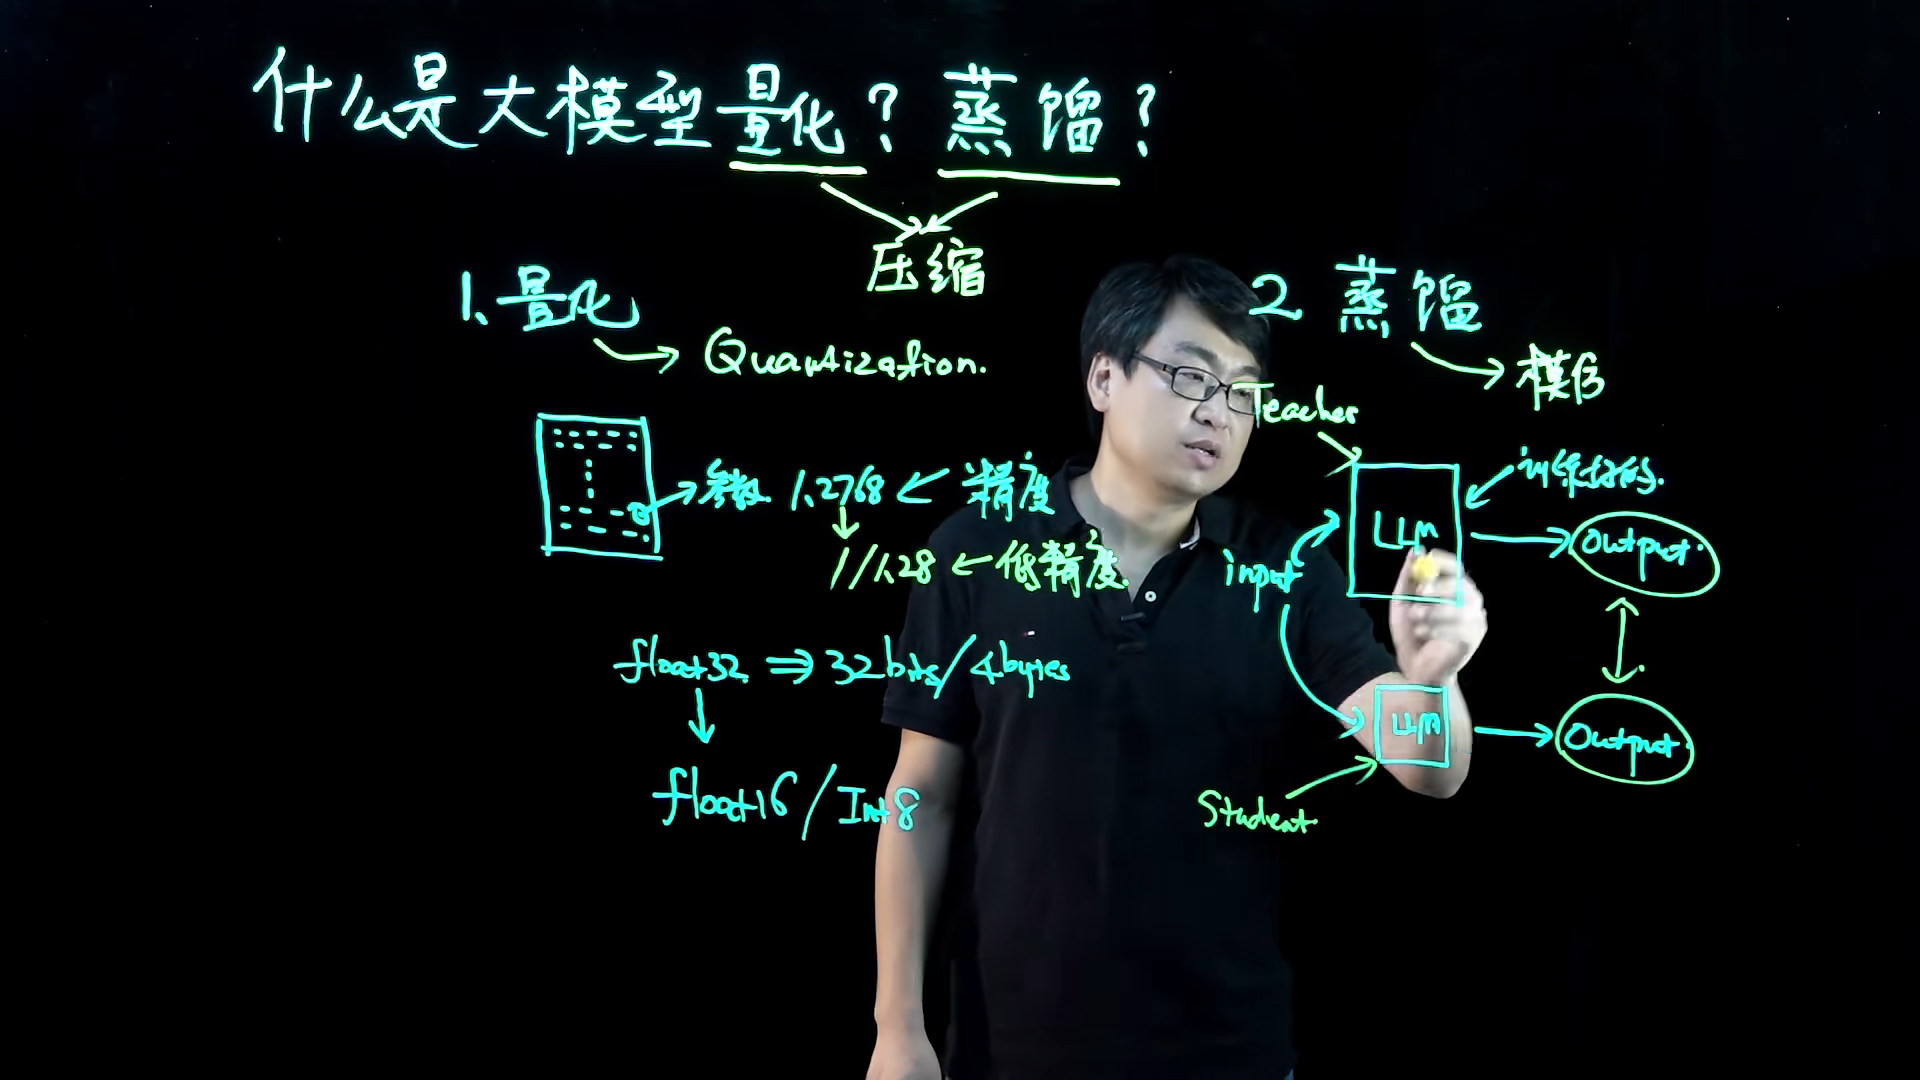 什么是大模型量化？蒸馏？
压缩
1、量化
Quantization.
参数 1.2768 ← 精度
1/1.28 ← 低精度.
float32 ⇒ 32bits/4bytes
float16/Int8
2. 蒸馏
模仿
Teacher
训练好的.
LLM
Output.
input
LLM
Output.
Student.